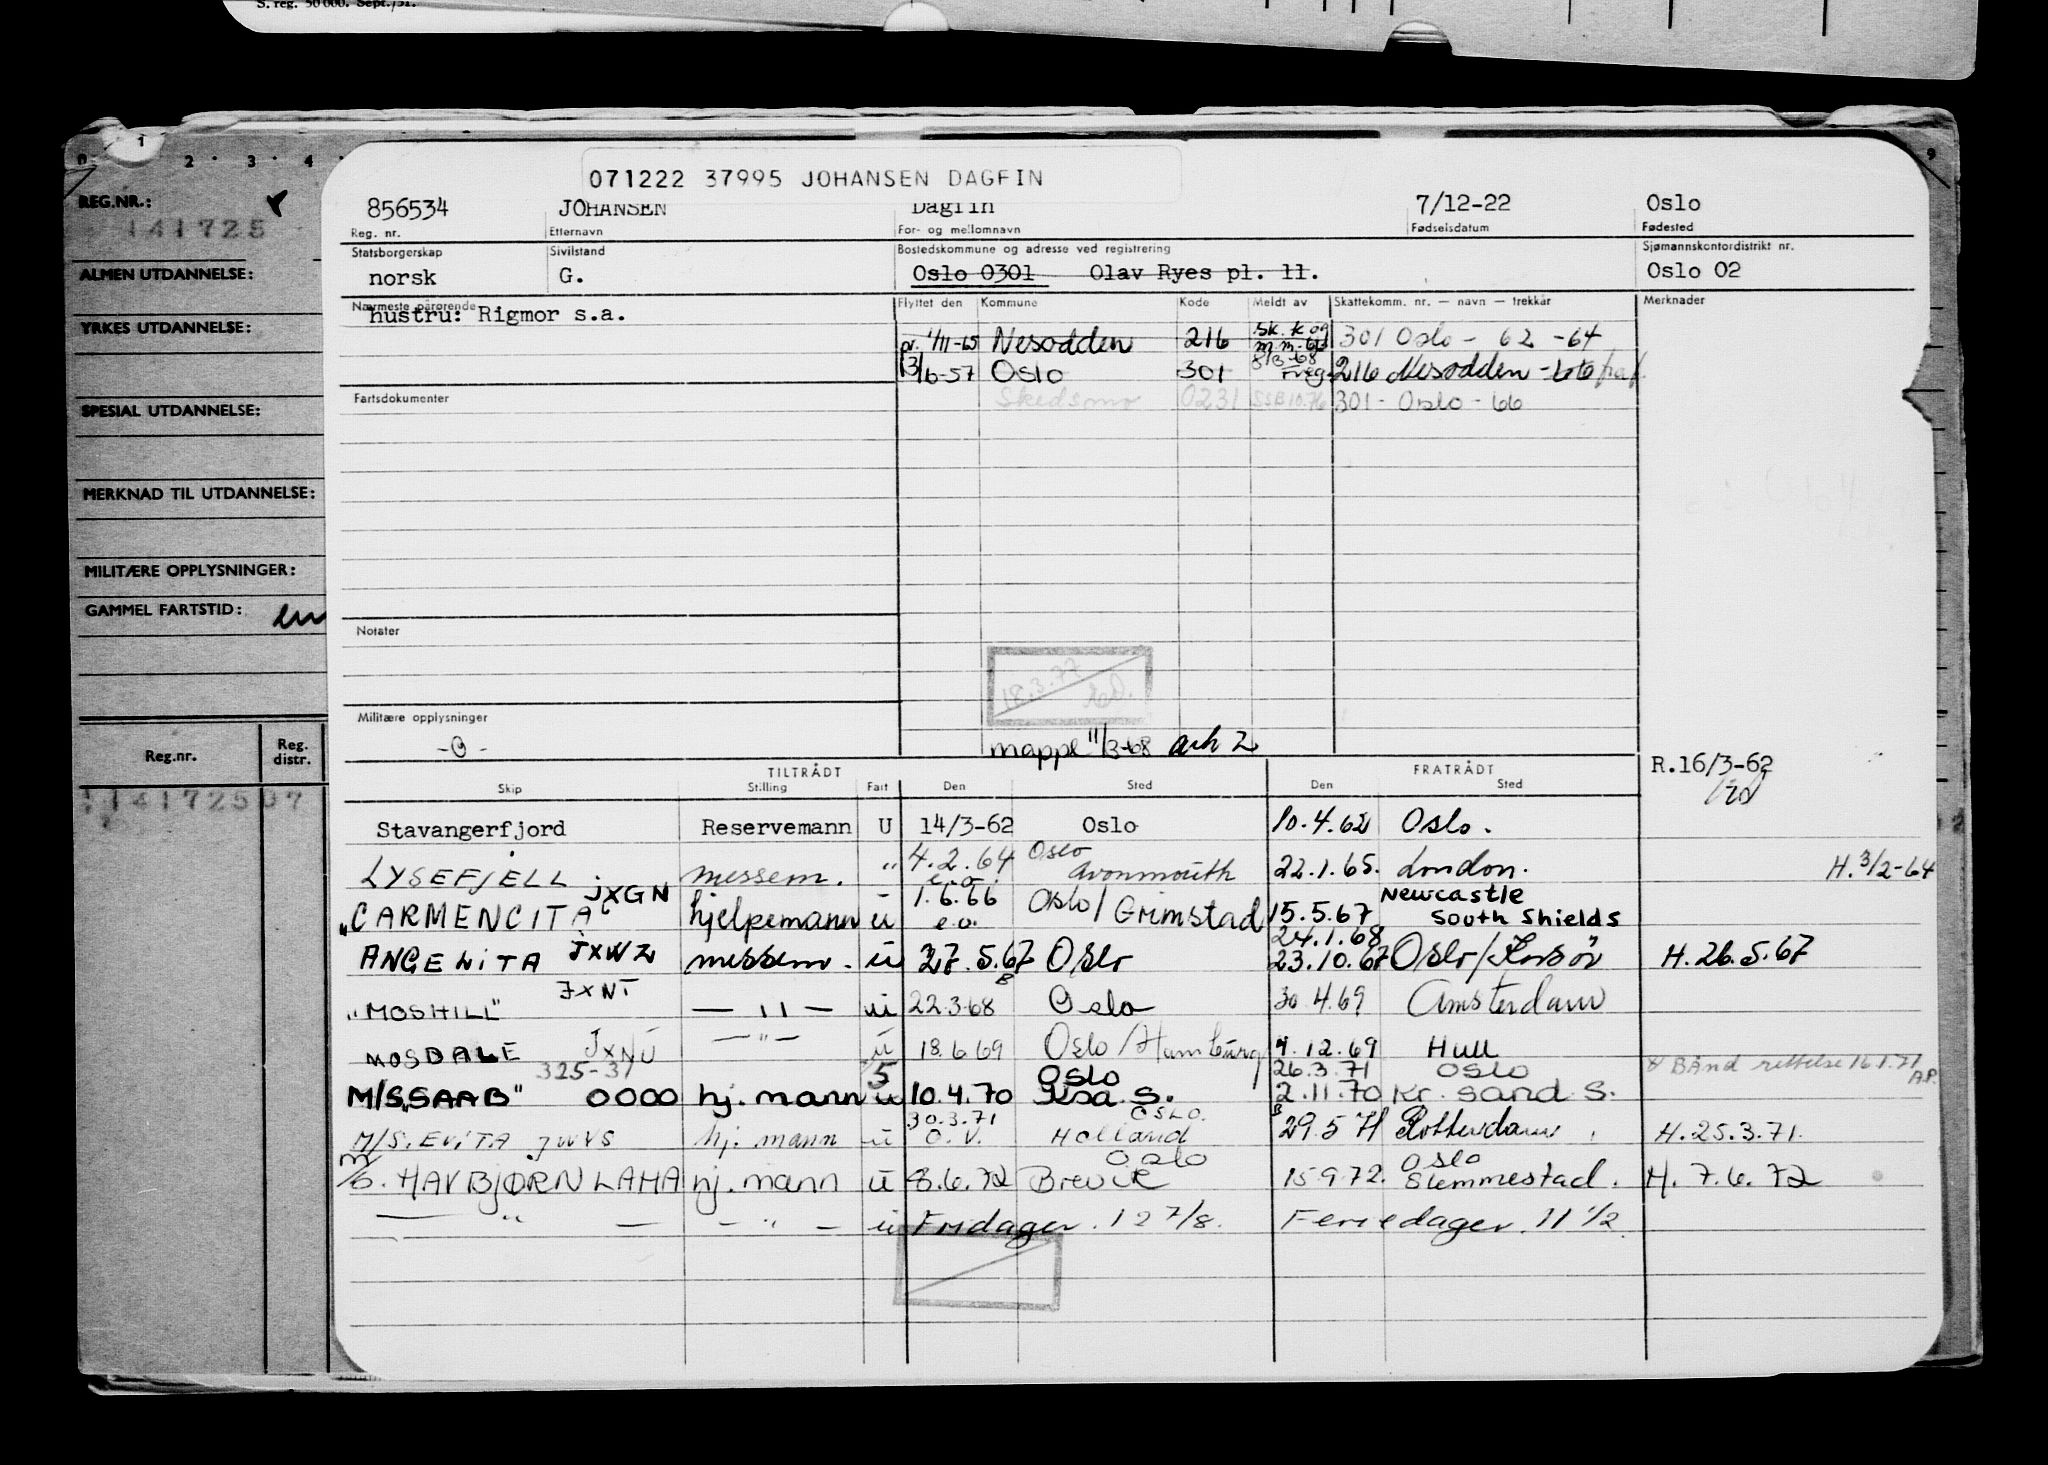 S. reg. 50 000. Sept./51.
0 1 2 3 4 9
REG.NR.:
141725
ALMEN UTDANNELSE:
YRKES UTDANNELSE:
SPESIAL UTDANNELSE:
MERKNAD TIL UTDANNELSE:
MILITÆRE OPPLYSNINGER:
GAMMEL FARTSTID:
Reg.nr. Reg. distr.
141725 07
071222 37995 JOHANSEN DAGFIN
856534 JOHANSEN Dagfin 7/12-22 Oslo
Reg. nr. Etternavn For- og mellomnavn Fødselsdatum Fødested
Statsborgerskap Sivilstand Bostedskommune og adresse ved registrering Sjømannskontordistrikt nr.
norsk G. Oslo 0301 Olav Ryes pl. 11. Oslo 02
Nærmeste pårørende Flyttet den Kommune Kode Meldt av Skattekomm. nr. — navn — trekkår Merknader
hustru: Rigmor s.a.
pr. 1/11-65 Nesodden 216 Sk. k og m.m. 301 Oslo - 62 -64
13/6-57 Oslo 301 8/3-68 Freg. 216 Nesodden - 66
Fartsdokumenter Skedsmo 0231 SSB 10.76 301 - Oslo - 66
Notater
18.3.77
Militære opplysninger
-0-
mappe 11/3-68 ark 2
TILTRÅDT FRATRÅDT R.16/3-62
Skip Stilling Fart Den Sted Den Sted
Stavangerfjord Reservemann U 14/3-62 Oslo 10.4.62 Oslo.
LYSEFJELL messem. " 4.2.64 e.o. Oslo Avonmouth 22.1.65. London. H. 3/2-64
"CARMENCITA" JXGN hjelpemann u 1.6.66 e.o. Oslo/Grimstad 15.5.67 Newcastle South Shields
ANGELITA JXWZ messem. u 27.5.67 Oslo 24.1.68 23.10.67 Oslo/Korsör H.26.5.67
"MOSHILL" JXNT — " — u 22.3.68 Oslo 30.4.69 Amsterdam
MOSDALE JXNU — " — u 18.6.69 Oslo/Hamburg 4.12.69 Hull
325-31 5 Oslo 26.3.71 Oslo Bånd rettelse 16.1.71 A.P.
M/S "SAAB" 0000 hj. mann u 10.4.70 Ksa. S. 2.11.70 Kr. sand S.
M/S. EVITA JWVS hj. mann u 30.3.71 O.V. OSLO. Holland 29.5 71 Rotterdam. H.25.3.71.
M/S. HAVBJØRN LAHA hj. mann u 8.6.72 Oslo Brevik 15.9.72. Oslo Slemmestad. H. 7.6.72
— " — — " — u Fridager. 12 7/8. Feriedager. 11 1/2